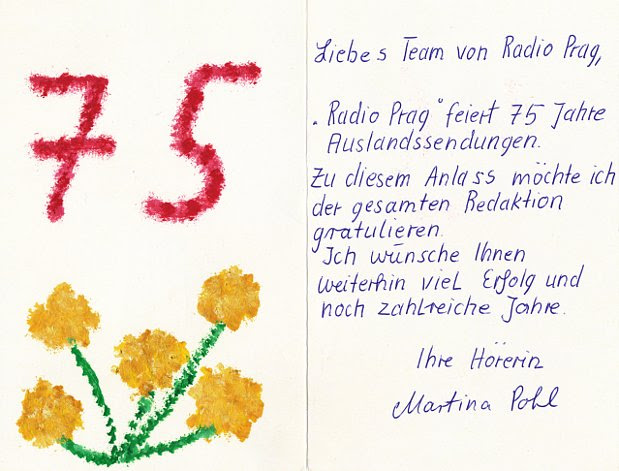 75
Liebes Team von Radio Prag,
„Radio Prag" feiert 75 Jahre
Auslandssendungen.
Zu diesem Anlass möchte ich
der gesamten Redaktion
gratulieren.
Ich wünsche Ihnen
weiterhin viel Erfolg und
noch zahlreiche Jahre.
Ihre Hörerin
Martina Pohl